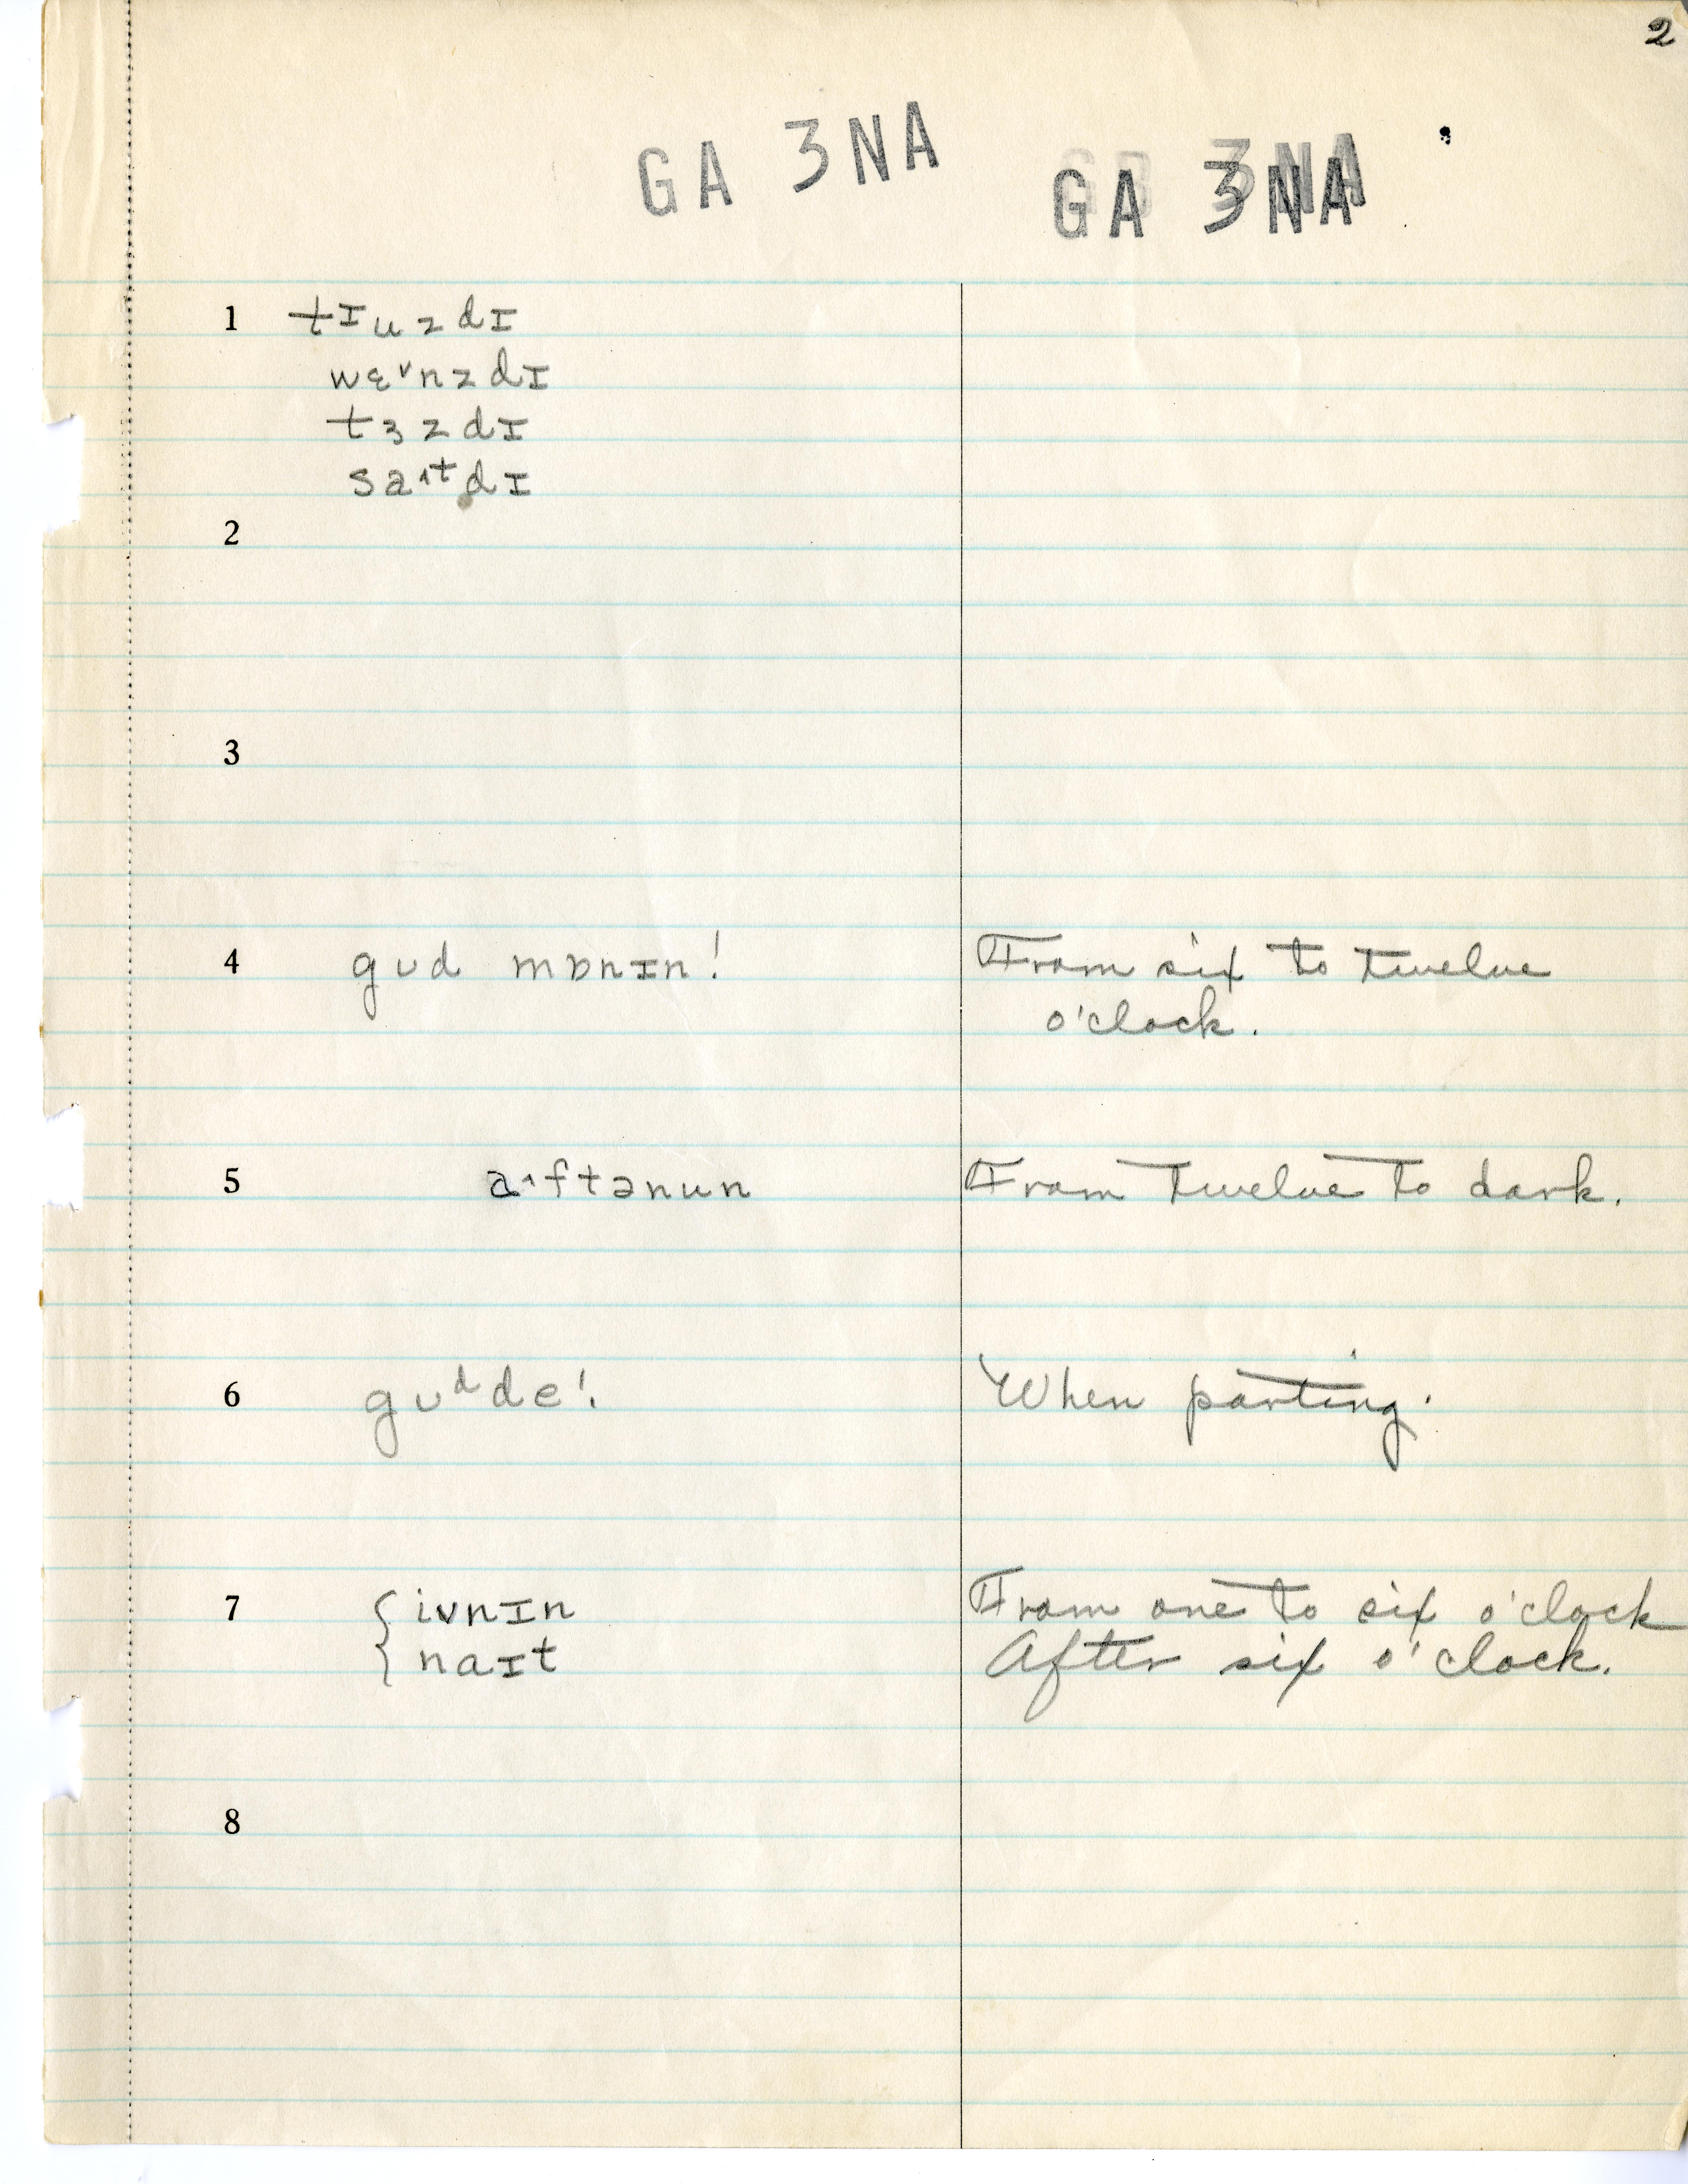 2
GA 3NA GA 3NA
1 tɪuzdɪ
wɛ˅nzdɪ
tɜzdɪ
sa˄tdɪ
2
3
4 gʊd mɒnɪn! From six to twelve
o'clock.
5 a˄ftənun From twelve to dark.
6 gʊᵈde! When parting.
7 { ivnɪn From one to six o'clock
naɪt After six o'clock.
8